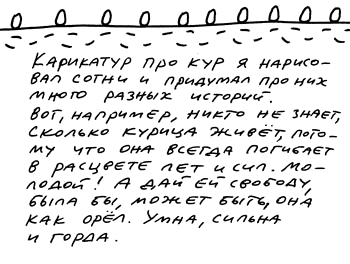 Карикатур про кур я нарисо-
вал сотни и придумал про них
много разных историй.
Вот, например, никто не знает,
сколько курица живёт, пото-
му что она всегда погибает
в расцвете лет и сил. Мо-
лодой! А дай ей свободу,
была бы, может быть, она
как орёл. Умна, сильна
и горда.